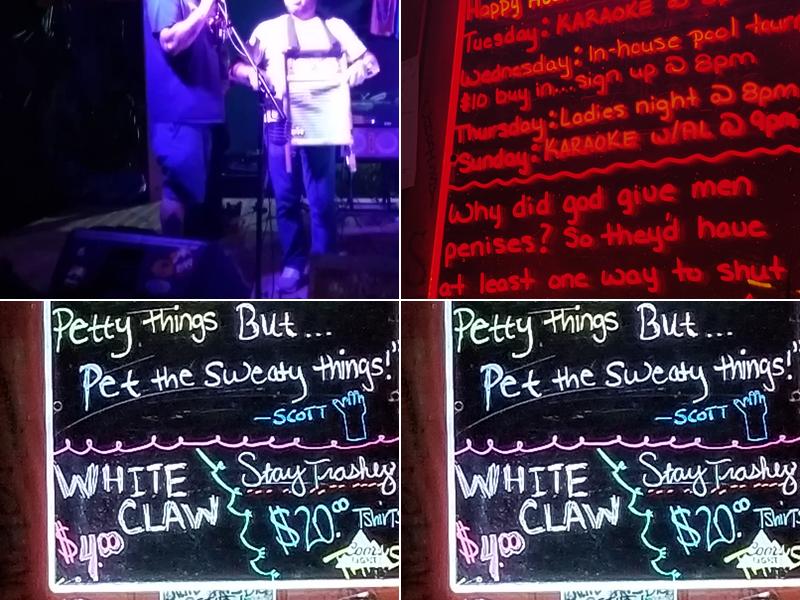 Happy
Tuesday: KARAOKE @
Wednesday: In-house pool
$10 buy in...sign up @ 8pm
Thursday: Ladies night @ 8pm
Sunday: KARAOKE w/AL @ 9pm
Why did god give men
penises? So they'd have
at least one way to shut
Petty things But...
Pet the Sweaty things!"
-SCOTT
WHITE
CLAW
$4.00
Stay Trashy
$20.00 TShirts
Coors
LIGHT
Petty things But...
Pet the Sweaty things!"
-SCOTT
WHITE
CLAW
$4.00
Stay Trashy
$20.00 TShirts
Coors
LIGHT